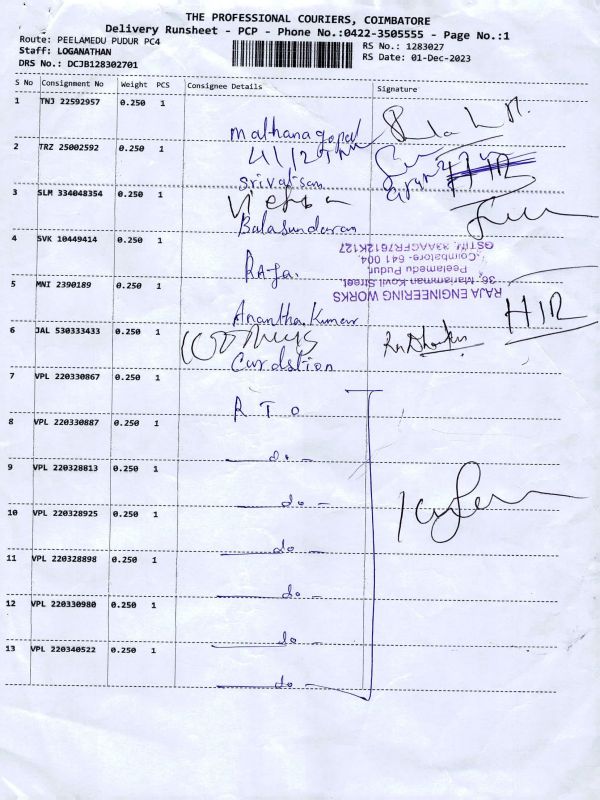 THE PROFESSIONAL COURIERS, COIMBATORE
Delivery Runsheet - PCP - Phone No.:0422-3505555 - Page No.:1
Route: PEELAMEDU PUDUR PC4
RS No.: 1283027
Staff: LOGANATHAN
RS Date: 01-Dec-2023
DRS No.: DCJB128302701
S No Consignment No Weight PCS Consignee Details Signature
1 TNJ 22592957 0.250 1
Mathanagopal
2 TRZ 25002592 0.250 1
Srivatsan
3 SLM 334048354 0.250 1
Balasundaran
4 SVK 10449414 0.250 1
Raja.
RAJA ENGINEERING WORKS
36, Mariamman Kovil Street,
Peelamedu Pudur,
Coimbatore- 641 004.
GSTIN: 33AACFR7612K127
5 MNI 2390189 0.250 1
Anantha Kumar
HIR
6 JAL 530333433 0.250 1
7 VPL 220330867 0.250 1
R T O
8 VPL 220330887 0.250 1
— do —
9 VPL 220328813 0.250 1
— do —
10 VPL 220328925 0.250 1
— do —
11 VPL 220328898 0.250 1
— do —
12 VPL 220330980 0.250 1
— do —
13 VPL 220340522 0.250 1
— do —